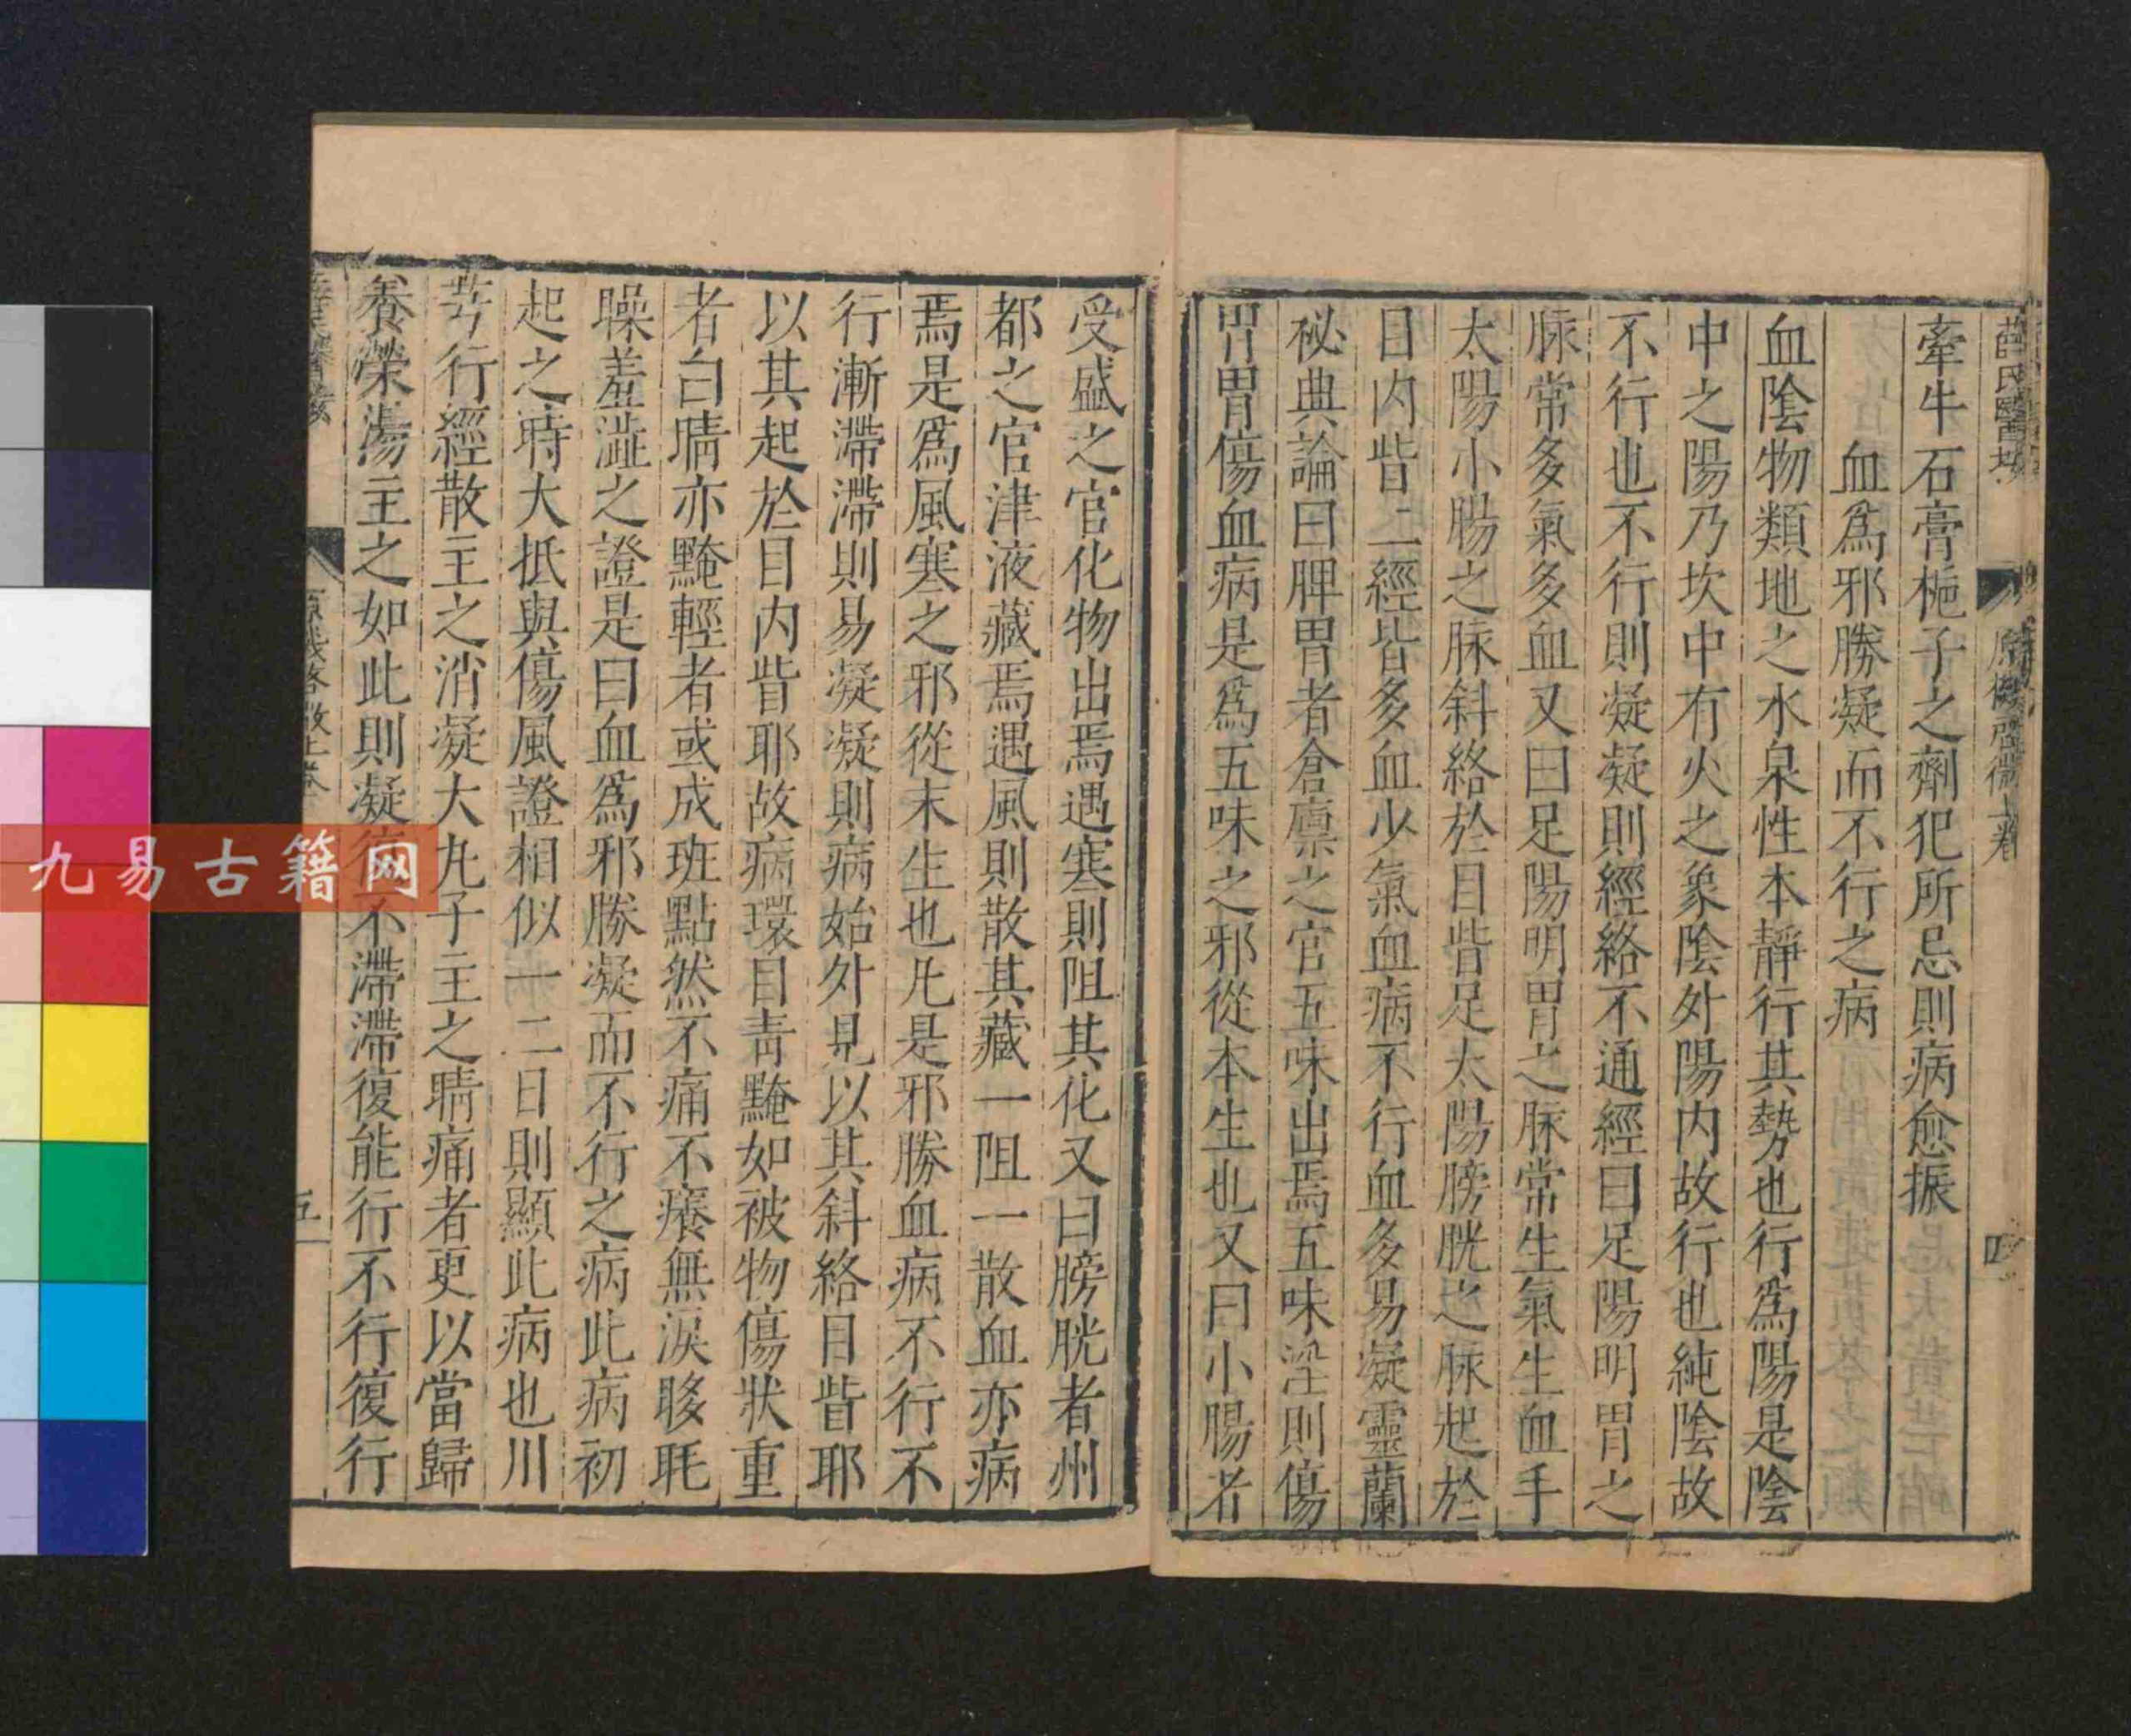 薛氏醫按
原機啓微上卷
四
牽牛石膏梔子之劑犯所忌則病愈振
血爲邪勝凝而不行之病
血陰物類地之水泉性本靜行其勢也行爲陽是陰
中之陽乃坎中有火之象陰外陽内故行也純陰故
不行也不行則凝凝則經絡不通經曰足陽明胃之
脉常多氣多血又曰足陽明胃之脉常生氣生血手
太陽小腸之脉斜絡於目眥足太陽膀胱之脉起於
目内眥二經皆多血少氣血病不行血多易凝靈蘭
秘典論曰脾胃者倉廪之官五味出焉五味淫則傷
胃胃傷血病是爲五味之邪從本生也又曰小腸者
受盛之官化物出焉遇寒則阻其化又曰膀胱者州
都之官津液藏焉遇風則散其藏一阻一散血亦病
焉是爲風寒之邪從末生也凡是邪勝血病不行不
行漸滯滯則易凝凝則病始外見以其斜絡目眥耶
以其起於目内眥耶故病環目青黤如被物傷狀重
者白睛亦黤輕者或成班點然不痛不癢無淚眵眊
矂羞澁之證是曰血爲邪勝凝而不行之病此病初
起之時大抵與傷風證相似一二日則顯此病也川
芎行經散主之消凝大丸子主之睛痛者更以當歸
養榮湯主之如此則凝復不滯滯復能行不行復行
五
九易古籍网